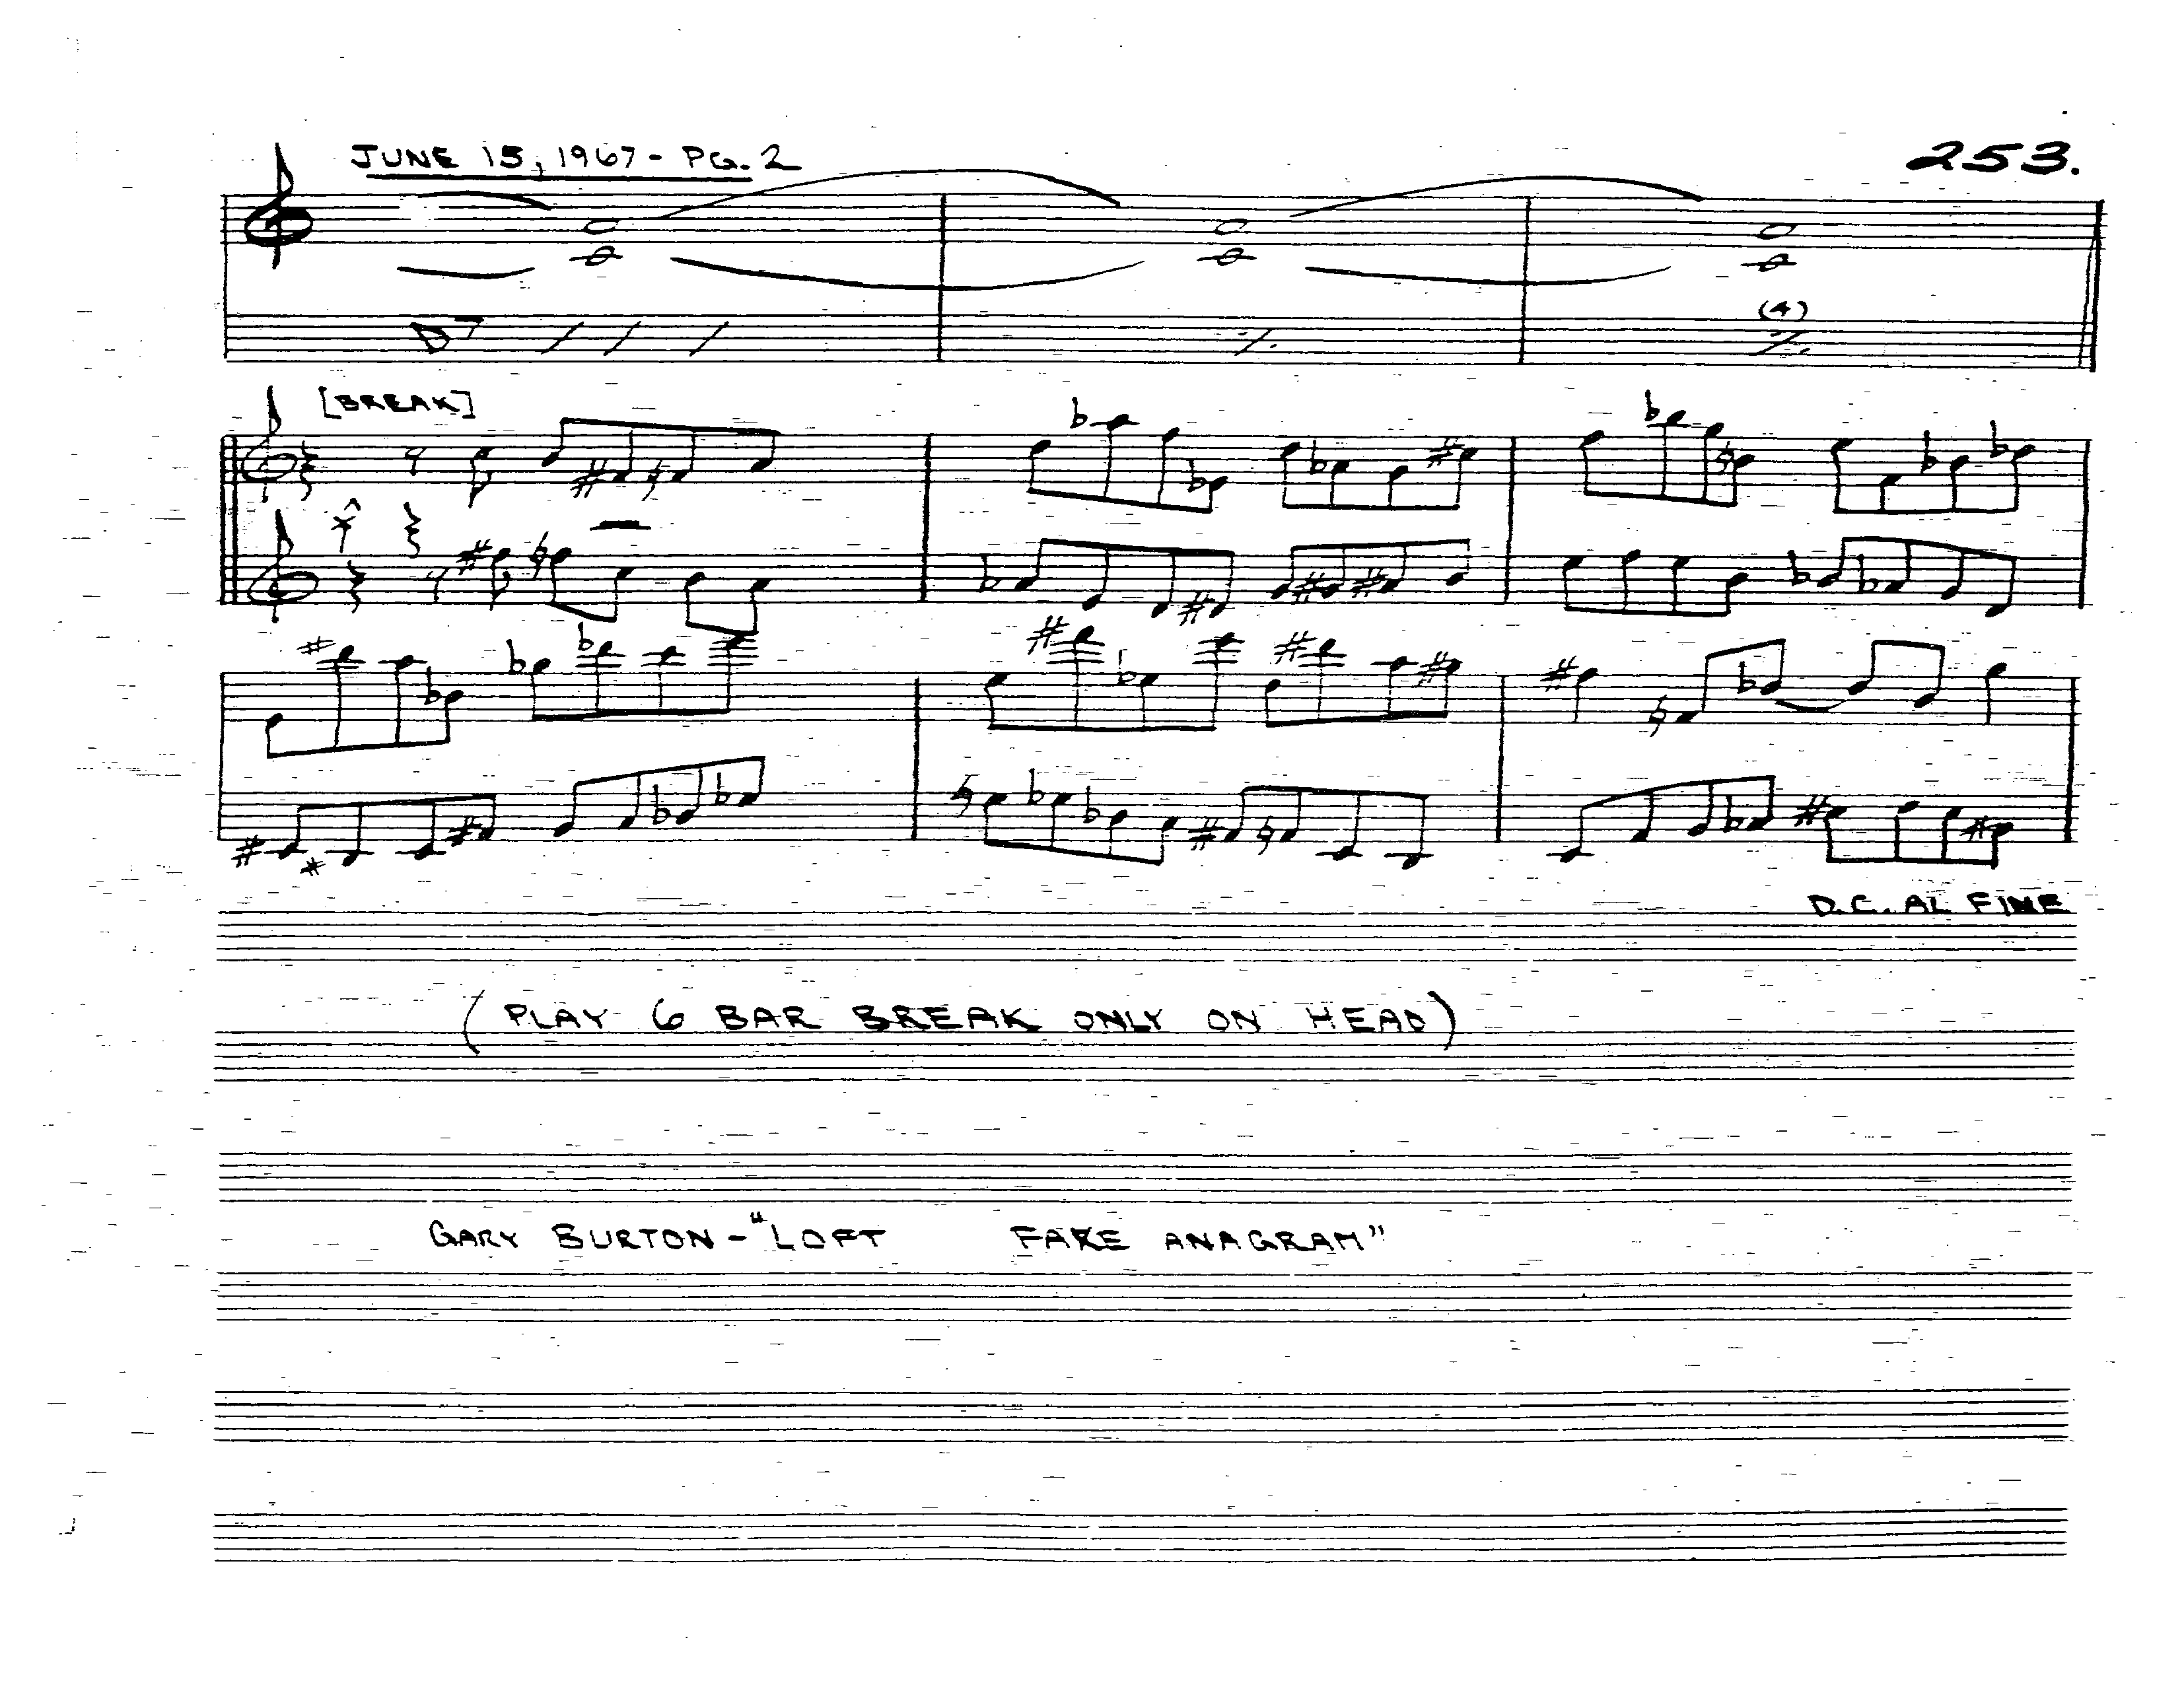 JUNE 15, 1967 - PG. 2
253.
(4)
[BREAK]
D.C. AL FINE
(PLAY 6 BAR BREAK ONLY ON HEAD)
GARY BURTON - "LOFT FAKE ANAGRAM"